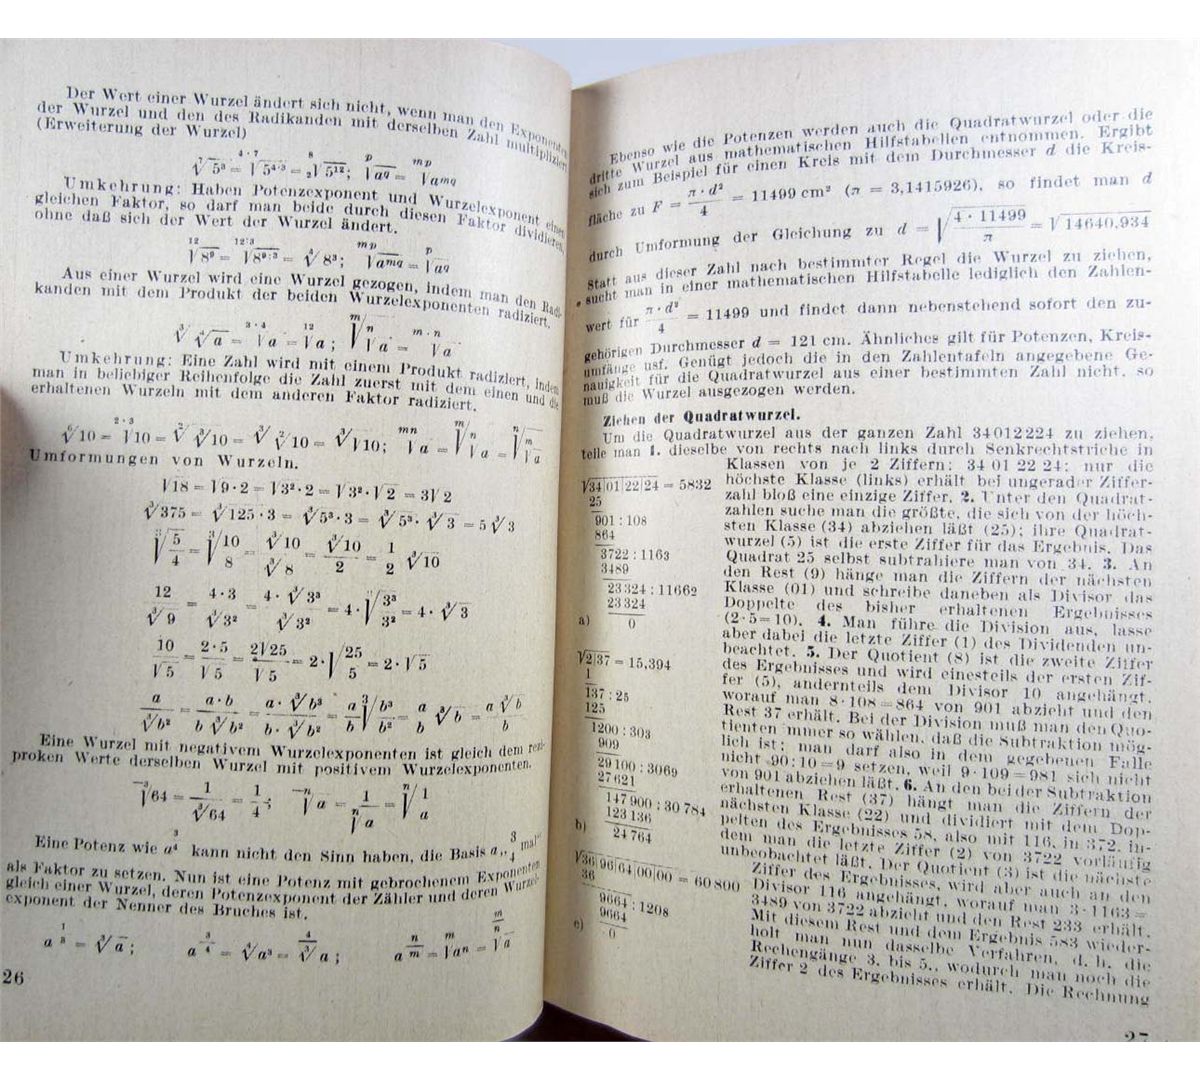 Der Wert einer Wurzel ändert sich nicht, wenn man den Exponenten
der Wurzel und den des Radikanden mit derselben Zahl multipliziert
(Erweiterung der Wurzel)
⁷√5³ = ⁴·⁷√5⁴·³ = ²⁸√5¹²; ᵖ√a^q = ᵐᵖ√a^mq
Umkehrung: Haben Potenzexponent und Wurzelexponent einen
gleichen Faktor, so darf man beide durch diesen Faktor dividieren,
ohne daß sich der Wert der Wurzel ändert.
¹²√8⁹ = ¹²:³√8⁹:³ = ⁴√8³; ᵐᵖ√a^mq = ᵖ√a^q
Aus einer Wurzel wird eine Wurzel gezogen, indem man den Radi-
kanden mit dem Produkt der beiden Wurzelexponenten radiziert.
³√⁴√a = ³·⁴√a = ¹²√a; ᵐ√ⁿ√a = ᵐ·ⁿ√a
Umkehrung: Eine Zahl wird mit einem Produkt radiziert, indem
man in beliebiger Reihenfolge die Zahl zuerst mit dem einen und die
erhaltenen Wurzeln mit dem anderen Faktor radiziert.
⁶√10 = ²·³√10 = ²√³√10 = ³√²√10 = ³√√10; ᵐⁿ√a = ᵐ√ⁿ√a = ⁿ√ᵐ√a
Umformungen von Wurzeln.
√18 = √9·2 = √3²·2 = √3²·√2 = 3√2
³√375 = ³√125·3 = ³√5³·3 = ³√5³·³√3 = 5³√3
³√5/4 = ³√10/8 = ³√10/³√8 = ³√10/2 = 1/2 ³√10
12/³√9 = 4·3/³√3² = 4·³√3³/³√3² = 4·³√3³/3² = 4·³√3
10/√5 = 2·5/√5 = 2√25/√5 = 2·√25/5 = 2·√5
a/³√b² = a·b/b³√b² = a·³√b³/b·³√b² = a/b ³√b³/b² = a/b ³√b = a³√b/b
Eine Wurzel mit negativem Wurzelexponenten ist gleich dem rezi-
proken Werte derselben Wurzel mit positivem Wurzelexponenten.
⁻³√64 = 1/³√64 = 1/4; ⁻ⁿ√a = 1/ⁿ√a = ⁿ√1/a
Eine Potenz wie a^3/4 kann nicht den Sinn haben, die Basis a „3/4 mal“
als Faktor zu setzen. Nun ist eine Potenz mit gebrochenem Exponenten
gleich einer Wurzel, deren Potenzexponent der Zähler und deren Wurzel-
exponent der Nenner des Bruches ist.
a^1/3 = ³√a; a^3/4 = ⁴√a³ = 4/3√a; a^n/m = ᵐ√aⁿ = m/n√a
26
Ebenso wie die Potenzen werden auch die Quadratwurzel oder die
dritte Wurzel aus mathematischen Hilfstabellen entnommen. Ergibt
sich zum Beispiel für einen Kreis mit dem Durchmesser d die Kreis-
fläche zu F = π·d²/4 = 11499 cm² (π = 3,1415926), so findet man d
durch Umformung der Gleichung zu d = √4·11499/π = √14640,934
Statt aus dieser Zahl nach bestimmter Regel die Wurzel zu ziehen,
sucht man in einer mathematischen Hilfstabelle lediglich den Zahlen-
wert für π·d²/4 = 11499 und findet dann nebenstehend sofort den zu-
gehörigen Durchmesser d = 121 cm. Ähnliches gilt für Potenzen, Kreis-
umfänge usf. Genügt jedoch die in den Zahlentafeln angegebene Ge-
nauigkeit für die Quadratwurzel aus einer bestimmten Zahl nicht, so
muß die Wurzel ausgezogen werden.
Ziehen der Quadratwurzel.
Um die Quadratwurzel aus der ganzen Zahl 34012224 zu ziehen,
teile man 1. dieselbe von rechts nach links durch Senkrechtstriche in
Klassen von je 2 Ziffern: 34 01 22 24; nur die
höchste Klasse (links) erhält bei ungerader Ziffer-
zahl bloß eine einzige Ziffer. 2. Unter den Quadrat-
zahlen suche man die größte, die sich von der höch-
sten Klasse (34) abziehen läßt (25); ihre Quadrat-
wurzel (5) ist die erste Ziffer für das Ergebnis. Das
Quadrat 25 selbst subtrahiere man von 34. 3. An
den Rest (9) hänge man die Ziffern der nächsten
Klasse (01) und schreibe daneben als Divisor das
Doppelte des bisher erhaltenen Ergebnisses
(2·5=10). 4. Man führe die Division aus, lasse
aber dabei die letzte Ziffer (1) des Dividenden un-
beachtet. 5. Der Quotient (8) ist die zweite Ziffer
des Ergebnisses und wird einesteils der ersten Zif-
fer (5), andernteils dem Divisor 10 angehängt,
worauf man 8·108=864 von 901 abzieht und den
Rest 37 erhält. Bei der Division muß man den Quo-
tienten immer so wählen, daß die Subtraktion mög-
lich ist; man darf also in dem gegebenen Falle
nicht 90:10=9 setzen, weil 9·109=981 sich nicht
von 901 abziehen läßt. 6. An den bei der Subtraktion
erhaltenen Rest (37) hängt man die Ziffern der
nächsten Klasse (22) und dividiert mit dem Dop-
pelten des Ergebnisses 58, also mit 116, in 372, in-
dem man die letzte Ziffer (2) von 3722 vorläufig
unbeobachtet läßt. Der Quotient (3) ist die nächste
Ziffer des Ergebnisses, wird aber auch an den
Divisor 116 angehängt, worauf man 3·1163=
3489 von 3722 abzieht und den Rest 233 erhält.
Mit diesem Rest und dem Ergebnis 583 wieder-
holt man nun dasselbe Verfahren, d. h. die
Rechengänge 3. bis 5., wodurch man noch die
Ziffer 2 des Ergebnisses erhält. Die Rechnung
√34|01|22|24 = 5832
25
901 : 108
864
3722 : 1163
3489
23324 : 11662
23324
a) 0
√2|37 = 15,394
1
137 : 25
125
1200 : 303
909
29100 : 3069
27621
147900 : 30784
123136
b) 24764
√36|96|64|00|00 = 60800
36
9664 : 1208
9664
c) 0
27